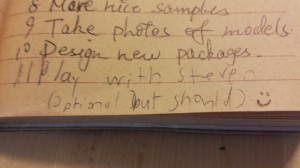 8 More nice samples
9 Take photos of models.
10 Design new packages.
11 Play with Steven
(optional but should) ☺